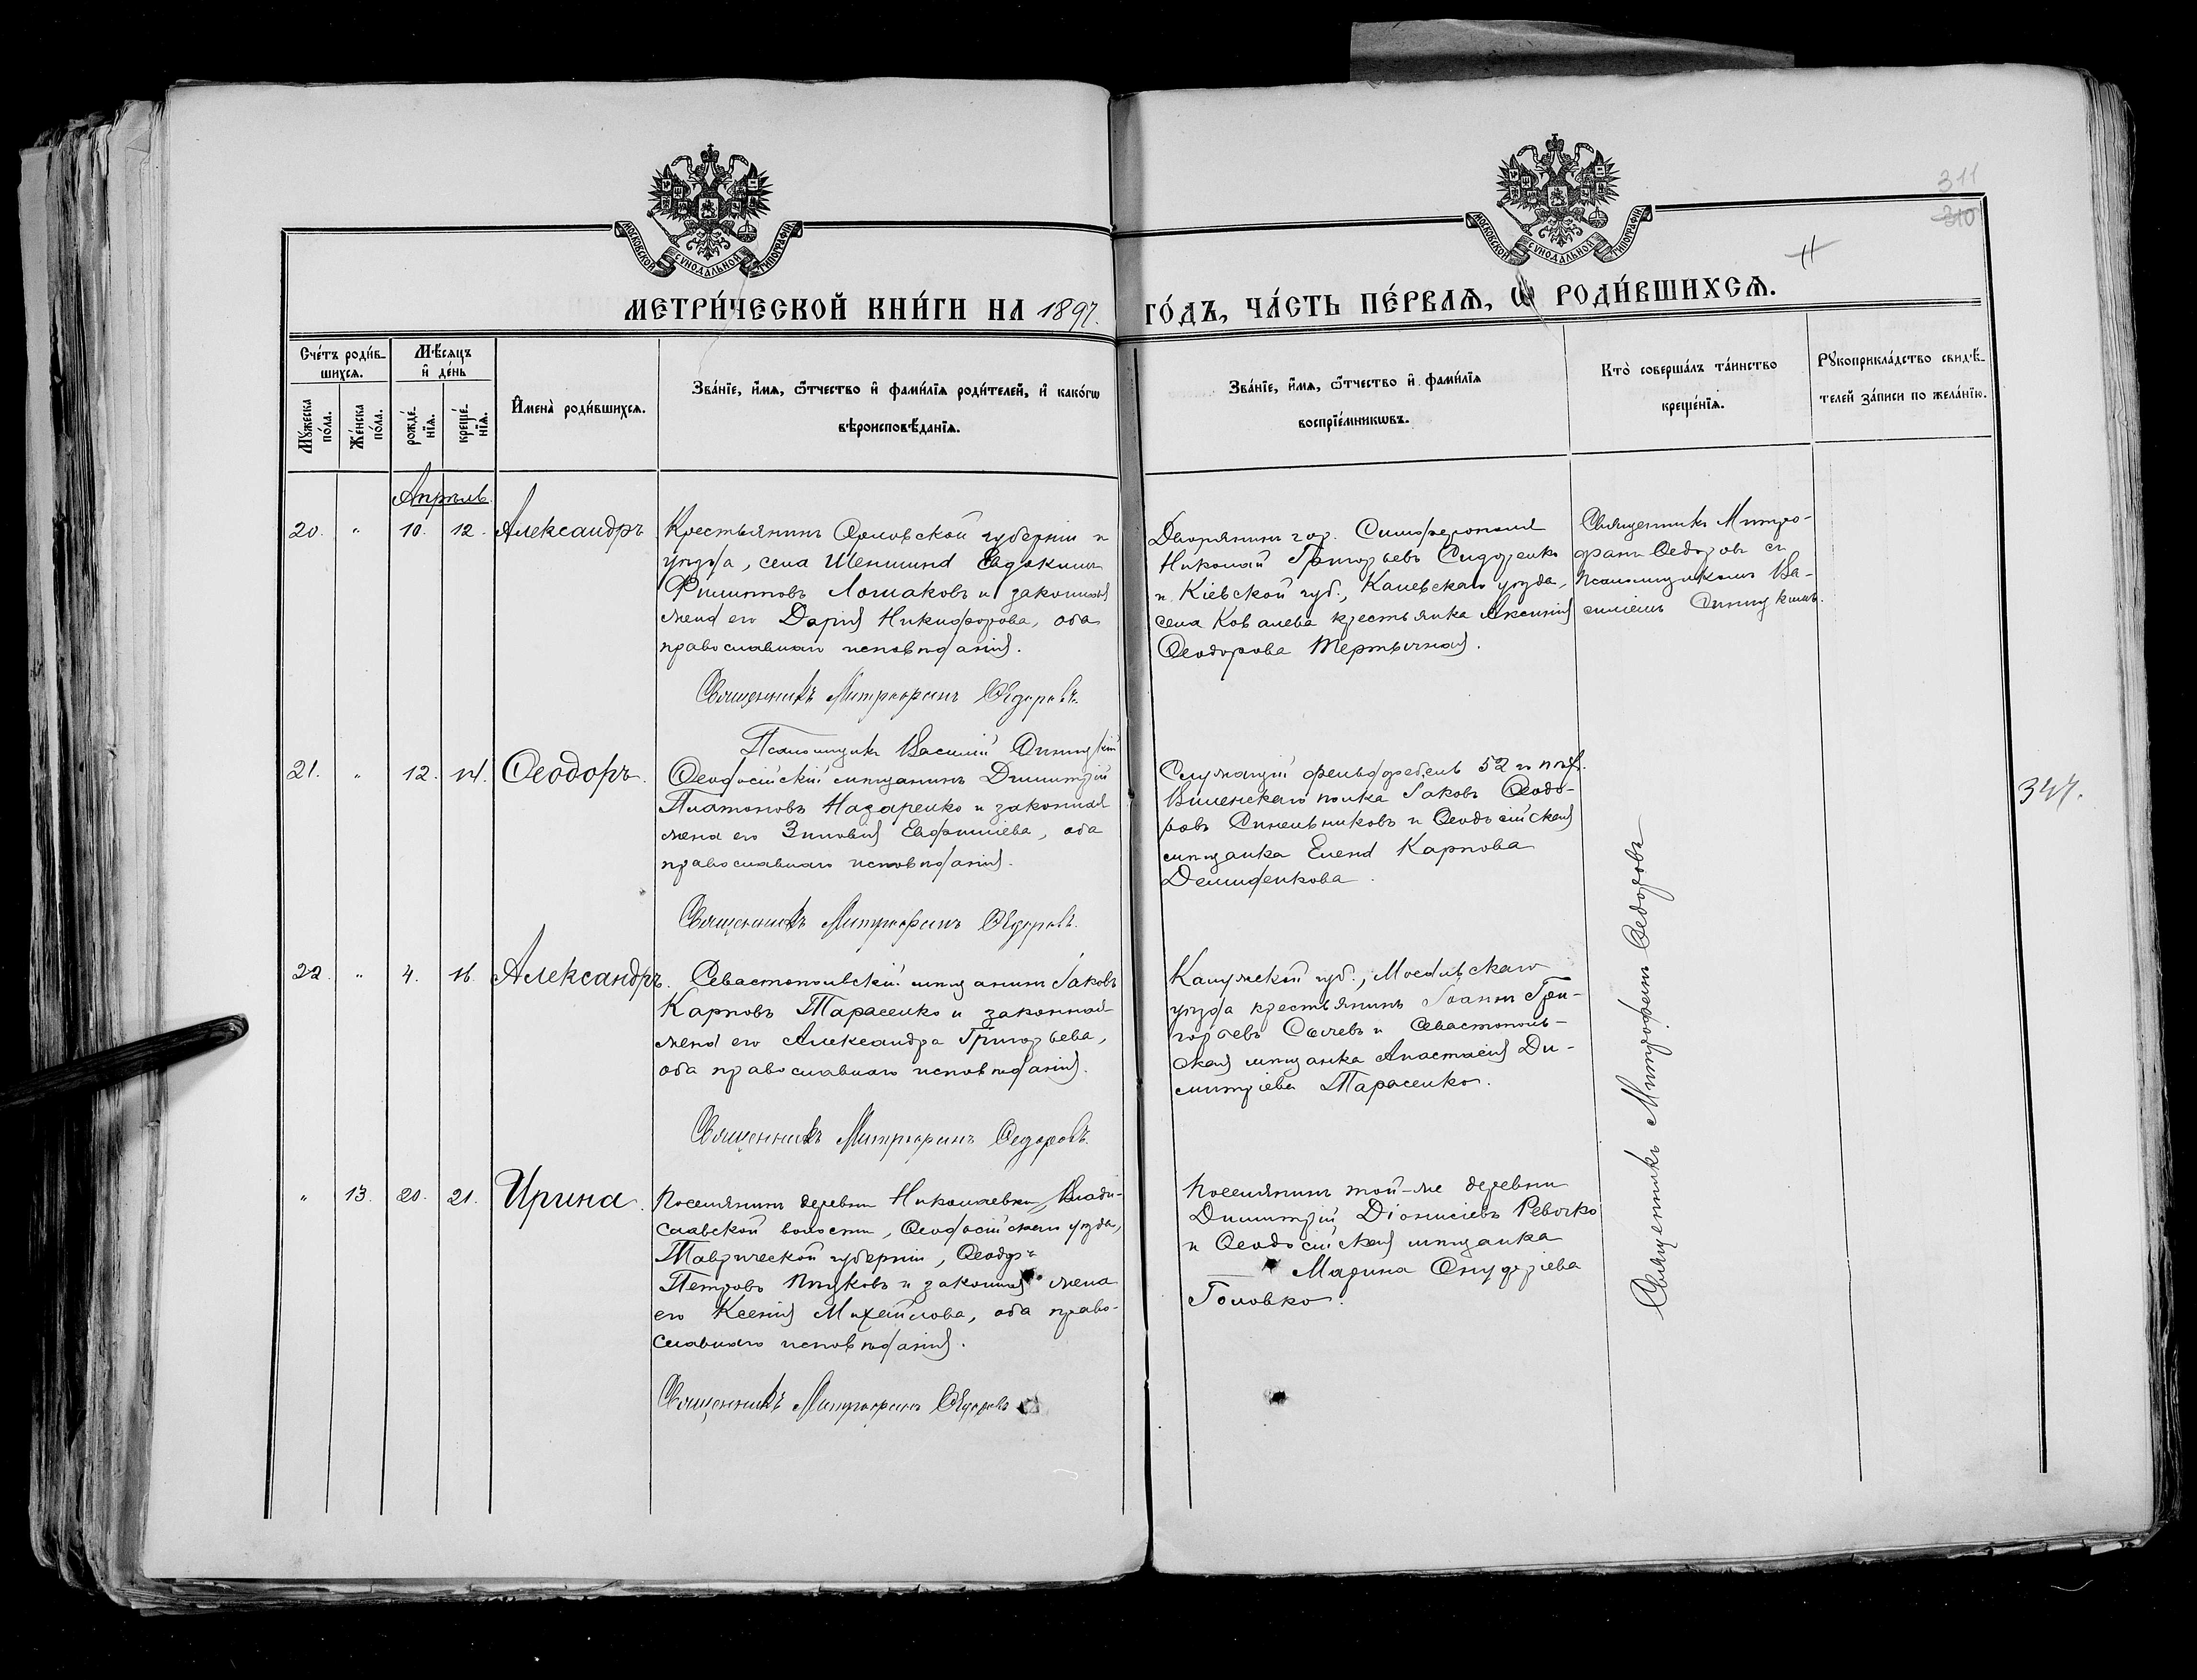 МОСКОВСКОЙ СУНОДАЛЬНОЙ ТИПОГРАФІИ
МОСКОВСКОЙ СУНОДАЛЬНОЙ ТИПОГРАФІИ
311
310
МЕТРИ́ЧЕСКОЙ КНИ́ГИ НА 1897. ГО́ДЪ, ЧА́СТЬ ПЕ́РВАѦ, Ѡ҆ РОДИ́ВШИХСѦ.
Сче́тъ роди́в-
шихсѧ.
Мꙋ́жеска
по́ла.
Же́нска
по́ла.
Мѣ́сѧцъ
и҆ де́нь
рожде́-
нїѧ.
креще́-
нїѧ.
И҆мена̀ роди́вшихсѧ.
Зва́нїе, и҆́мѧ, ѻ҆́тчество и҆ фами́лїѧ роди́телей, и҆ како́гѡ
вѣроисповѣ́данїѧ.
Зва́нїе, и҆́мѧ, ѻ҆́тчество и҆ фами́лїѧ
воспрїе́мникѡвъ.
Кто̀ соверша́лъ та́инство
креще́нїѧ.
Рꙋкоприкла́дство свидѣ́-
телей за́писи по жела́нїю.
Апрѣль
20. " 10. 12. Александръ
Крестьянинъ Орловской губерніи и
уѣзда, села Шеншина Евдокимъ
Филипповъ Лошаковъ и законная
жена его Дарія Никифорова, оба
православнаго исповѣданія.
Священникъ Митрофанъ Ѳедоровъ.
Псаломщикъ Василій
Дворянинъ гор. Симферополя
Николай Григорьевъ Сидоренко
и Кіевской губ., Каневскаго уѣзда,
села Ковалева крестьянка Аксинія
Ѳеодорова Тертычная.
Священникъ Митро-
фанъ Ѳедоровъ съ
псаломщикомъ Ва-
силіемъ
21. " 12. 14. Ѳеодоръ.
Ѳеодосійскій мѣщанинъ Димитрій
Платоновъ Назаренко и законная
жена его Зиновія Евфиміева, оба
православнаго исповѣданія.
Священникъ Митрофанъ Ѳедоровъ.
Служащій фельдфебель 52 го пѣх.
Виленскаго полка Іаковъ Ѳеодо-
ровъ Синельниковъ и Ѳеодосійская
мѣщанка Елена Карпова
Демиденкова.
347.
22. " 4. 16. Александръ.
Севастопольскій мѣщанинъ Іаковъ
Карповъ Тарасенко и законная
жена его Александра Григорьева,
оба православнаго исповѣданія.
Священникъ Митрофанъ Ѳедоровъ.
Калужской губ., Мосальскаго
уѣзда крестьянинъ Іоаннъ Гри-
горьевъ Сычевъ и Севастополь-
ская мѣщанка Анастасія Ди-
митріева Тарасенко.
Священникъ Митрофанъ Ѳедоровъ
" 13. 20. 21. Ирина.
Поселянинъ деревни Николаевки, Влади-
славской волости, Ѳеодосійскаго уѣзда,
Таврической губерніи, Ѳеодоръ
Петровъ и законная жена
его Ксенія Михайлова, оба право-
славнаго исповѣданія.
Священникъ Митрофанъ Ѳедоровъ
Поселянинъ той-же деревни
Димитрій Діонисіевъ Ревочко
и Ѳеодосійская мѣщанка
Марина Онуфріева
Головко.